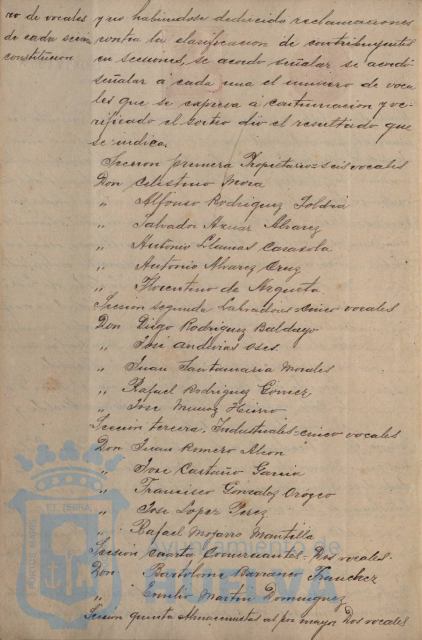 ro de vocales
de cada sección
constitucion
y no habiéndose deducido reclamaciones
contra la clasificacion de contribuyentes
en secciones, se acordo señalar se acordó
señalar á cada una el número de voca-
les que se expresa á continuacion y ve-
rificado el sorteo dio el resultado que
se indica.
Seccion primera Propietarios = seis vocales
Don Celestino Mora
" Alfonso Rodriguez
" Salvador Aznar Alvarez
" Antonio Llamas Carasola
" Antonio Alvarez Cruz
" Florentino de Azqueta
Seccion segunda Labradores = cinco vocales
Don Diego Rodriguez Balduyo
" José Andivias Oses
" Juan Santamaria Morales
" Rafael Rodriguez Gomez
" Jose Muñoz Hierro
Seccion tercera. Industriales = cinco vocales
Don Juan Romero
" Jose Castaño Garcia
" Francisco Gonzalez Orozco
" Jose Lopez Perez
" Rafael Mojarro Mantilla
Seccion cuarta Comerciantes. Dos vocales.
Don Bartolome Barranco
" Emilio Martin Dominguez
Sección quinta Almacenistas al por mayor Dos vocales